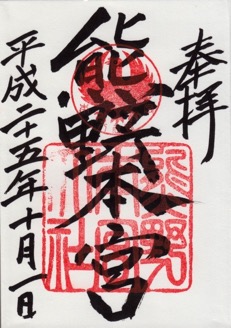 奉拝
熊野本宮
平成二十五年十月一日